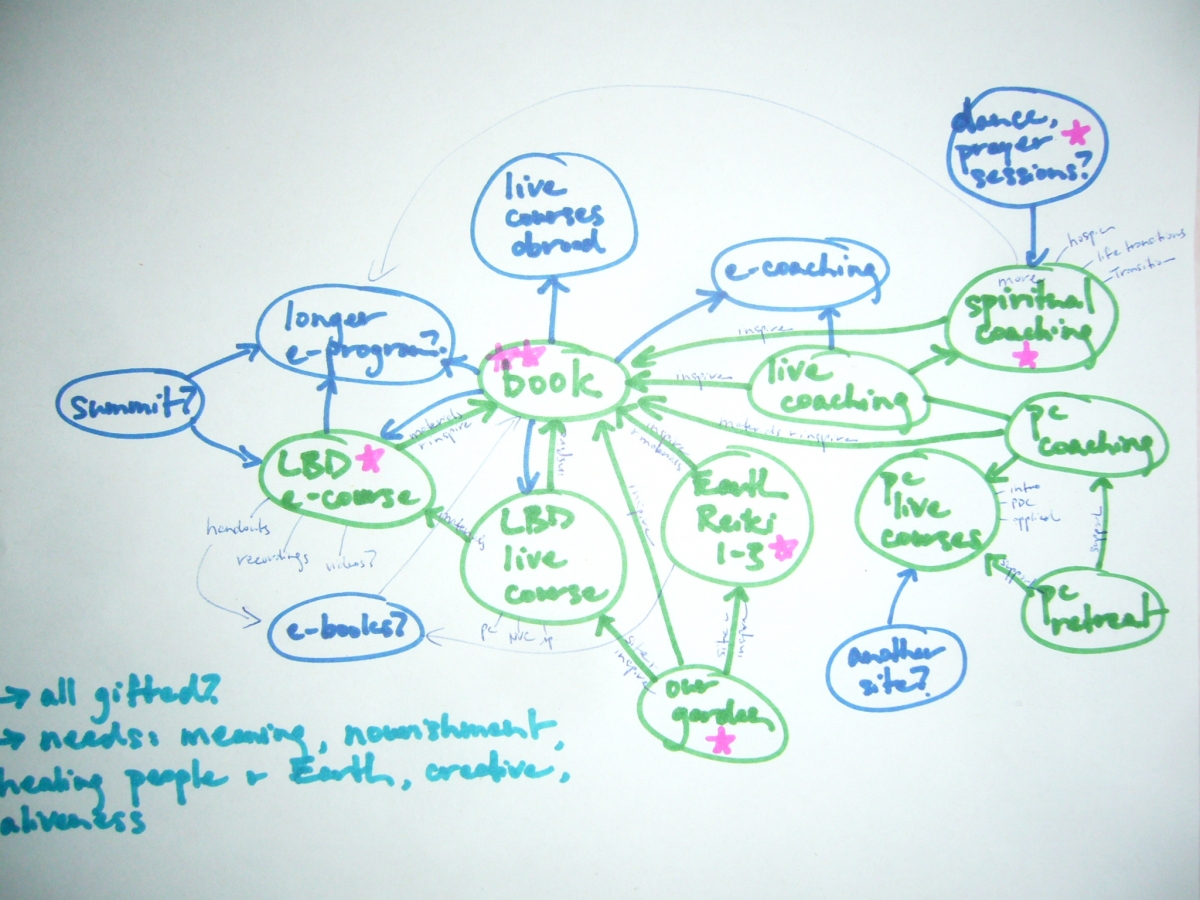 dance,
prayer
sessions?
live
courses
abroad
e-coaching
hospice
life transitions
Transition
more
spiritual
coaching
inspire
longer
e-program?
book
inspire
live
coaching
summit?
materials
+ inspire
inspire
+ materials
materials + inspire
pc
coaching
LBD
e-course
handouts
recordings
videos?
materials
inspire
LBD
live
course
pc
NVC
inspire
Earth
Reiki
1-3
pc
live
courses
intro
PDC
applied
support
support
pc
retreat
e-books?
site +
inspire
site +
inspire
our
garden
another
site?
→ all gifted?
→ needs: meaning, nourishment,
healing people + Earth, creative,
aliveness